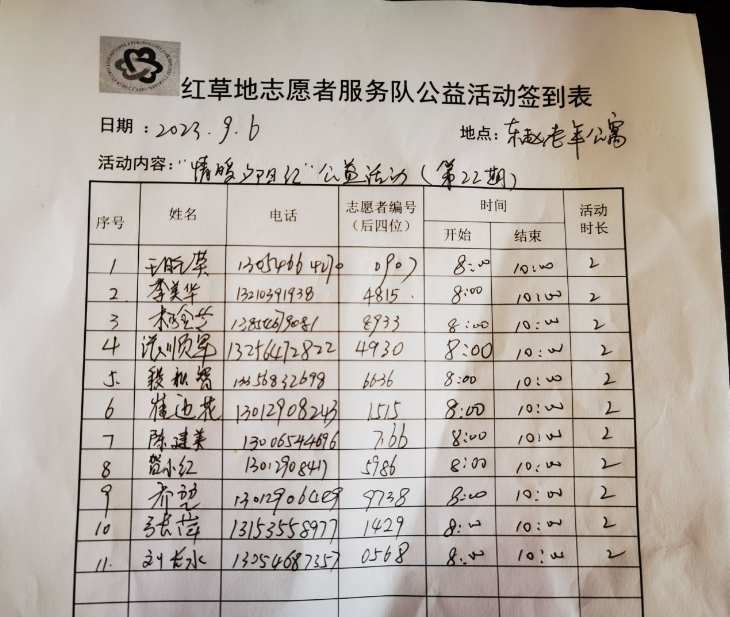 红草地志愿者服务队公益活动签到表
日期：2023.9.6 地点：东赵老年公寓
活动内容："情暖夕阳红"公益活动（第22期）
序号 姓名 电话 志愿者编号（后四位） 时间 开始 结束 活动时长
1 13054664270 0907 8:00 10:00 2
2. 李美华 13210391938 4815. 8:00 10:00 2
3 13854679081 8933 8:00 10:00 2
4 13256472822 4930 8:00 10:00 2
5. 13356832698 6636 8:00 10:00 2
6 崔迎花 13012908243 1515 8:00 10:00 2
7 陈建美 13006544696 7166 8:00 10:00 2
8 贺小红 1301290841 5986 8:00 10:00 2
9 乔 13012906409 9738 8:00 10:00 2
10 张萍 13153558977 1429 8:00 10:00 2
11. 刘长水 13054687357 0568 8:00 10:00 2